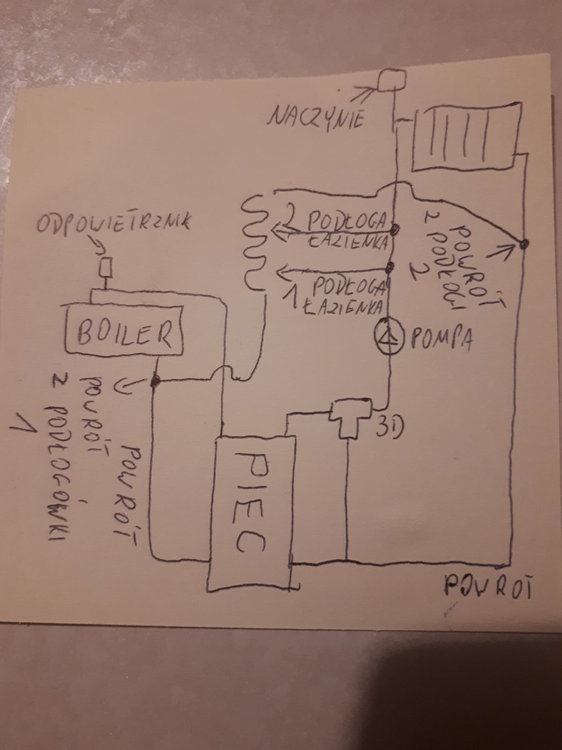 NACZYNIE
ODPOWIETRZNIK
2 PODŁOGA
ŁAZIENKA
1 PODŁOGA
ŁAZIENKA
POWRÓT
Z PODŁOGI
2
BOILER
POMPA
3D
PIEC
POWRÓT
POWRÓT
Z PODŁOGÓWKI
1
POWRÓT